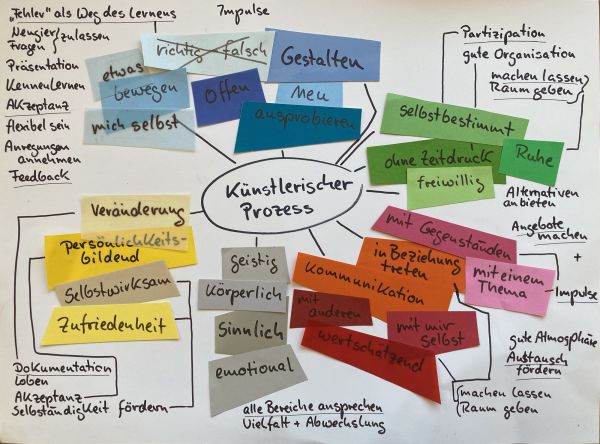 „Fehler" als Weg des Lernens
Neugier
Fragen
zulassen
Präsentation
Kennenlernen
Akzeptanz
flexibel sein
Anregungen
annehmen
Feedback
Impulse
richtig - falsch
Gestalten
etwas
bewegen
mich selbst
Offen
Neu
ausprobieren
Partizipation
gute Organisation
machen lassen
Raum geben
selbstbestimmt
ohne Zeitdruck
Ruhe
freiwillig
Alternativen
anbieten
Künstlerischer
Prozess
Veränderung
Persönlichkeits-
bildend
Selbstwirksam
Zufriedenheit
Dokumentation
Loben
Akzeptanz
Selbständigkeit fördern
geistig
Körperlich
Sinnlich
emotional
alle Bereiche ansprechen
Vielfalt + Abwechslung
mit Gegenständen
in Beziehung
treten
mit einem
Thema
Kommunikation
mit
anderen
mit mir
selbst
wertschätzend
Angebote
machen
+
Impulse
gute Atmosphäre
Austausch
fördern
machen lassen
Raum geben